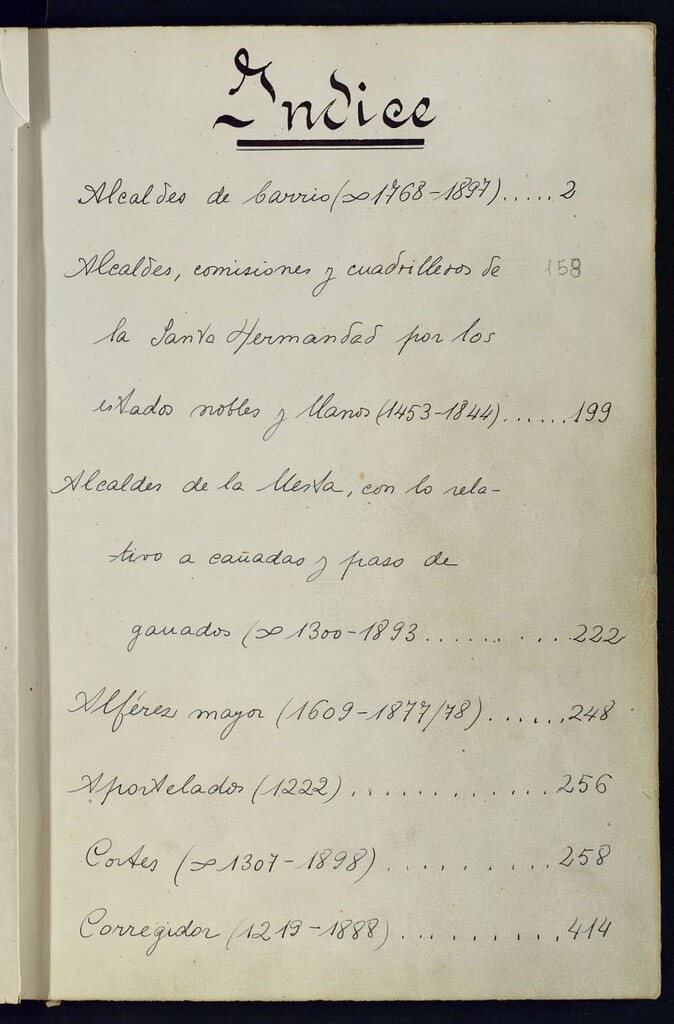 Indice
Alcaldes de barrio (∞1768-1897).....2
Alcaldes, comisiones y cuadrilleros de 158
la Santa Hermandad por los
estados nobles y llanos (1453-1844)......199
Alcaldes de la Mesta, con lo rela-
tivo a cañadas y paso de
ganados (∞1300-1893..........222
Alférez mayor (1609-1877/78)......248
Aportelados (1222).............256
Cortes (∞1307-1898)..........258
Corregidor (1219-1888)..........414